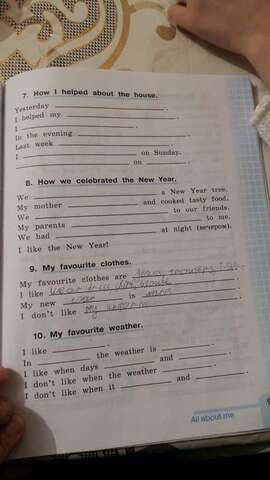 7. How I helped about the house.
Yesterday ____________________ .
I helped my ____________________ .
I ____________________ .
In the evening ____________________ .
Last week ____________________ .
I ____________________ on Sunday.
____________________ on __________ .
8. How we celebrated the New Year.
We ____________________ a New Year tree.
My mother ____________________ and cooked tasty food.
We ____________________ to our friends.
My parents ____________________ to me.
We had ____________________ at night (вечером).
I like the New Year!
9. My favourite clothes.
My favourite clothes are jeans,
I like wear
My new is .
I don't like my uniform .
10. My favourite weather.
I like __________ .
In __________ the weather is __________ .
I like when days __________ and __________ .
I don't like when the weather __________ .
I don't like when it __________ and __________ .
All about me